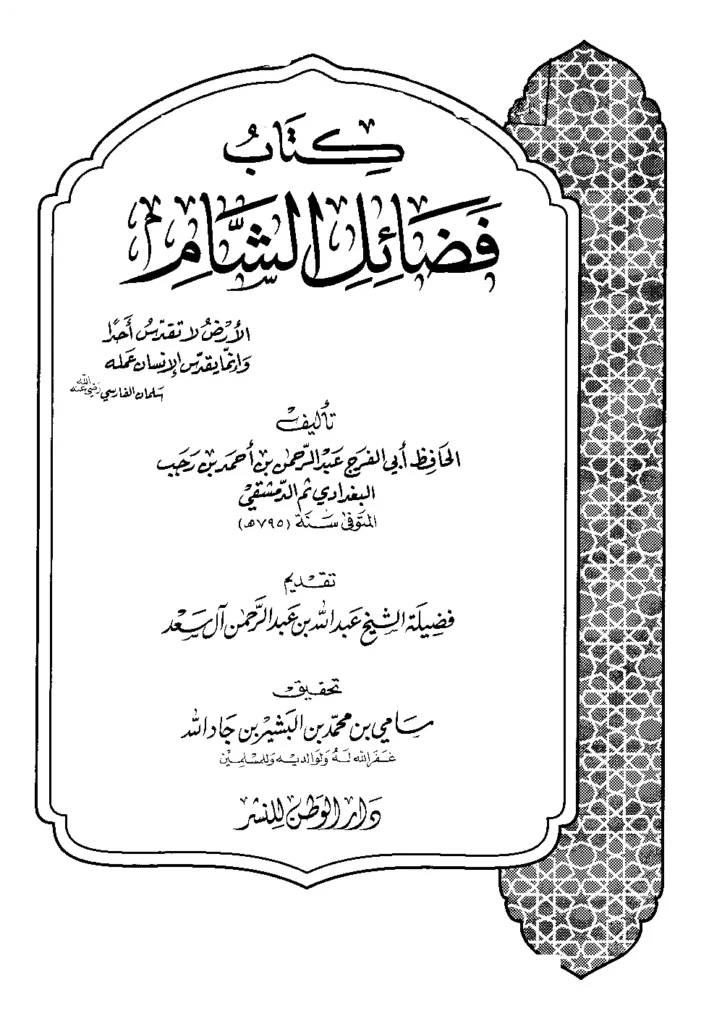 كِتَابُ
فَضَائِلِ الشَّامِ
الأرضُ لا تقدّسُ أحدًا
وَإنّما يقدّس الإنسان عمله
سلمان الفارسي رضي الله عنه
تأليف
الحَافِظ أبي الفرج عَبد الرّحمن بن أحمد بن رَجَب
البغدادي ثم الدّمشقي
المتَوفى سَنَة (٧٩٥هـ)
تقديم
فضِيلَة الشيخ عَبد الله بن عَبد الرَّحمن آل سَعد
تحقيق
سَامي بن محمّد بن البَشير بن جَاد الله
غفَر الله لَهُ وَلوَالديه وَللمُسلمِينْ
دَار الوَطن للِنشر